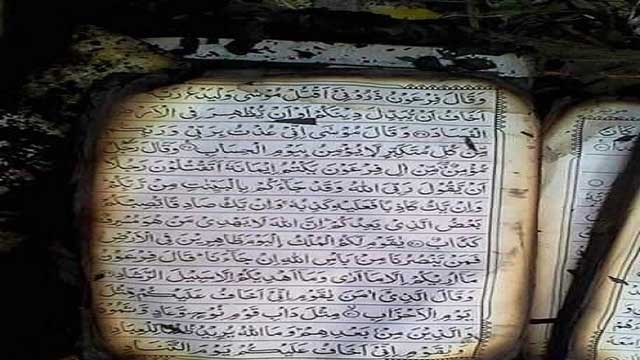 وَقَالَ فِرْعَوْنُ ذَرُوْنِيْٓ اَقْتُلْ مُوْسٰى وَلْيَدْعُ
اَخَافُ اَنْ يُّبَدِّلَ دِيْنَكُمْ اَوْ اَنْ يُّظْهِرَ فِي الْاَرْضِ
الْفَسَادَ وَقَالَ مُوْسٰٓى اِنِّيْ عُذْتُ بِرَبِّيْ وَرَبِّكُمْ
مِّنْ كُلِّ مُتَكَبِّرٍ لَّا يُؤْمِنُ بِيَوْمِ الْحِسَابِ وَقَالَ رَجُلٌ
مُّؤْمِنٌ مِّنْ اٰلِ فِرْعَوْنَ يَكْتُمُ اِيْمَانَهٗٓ اَتَقْتُلُوْنَ رَجُلًا
اَنْ يَّقُوْلَ رَبِّيَ اللّٰهُ وَقَدْ جَآءَكُمْ بِالْبَيِّنٰتِ مِنْ رَّبِّكُمْ
وَاِنْ يَّكُ كَاذِبًا فَعَلَيْهِ كَذِبُهٗ وَاِنْ يَّكُ صَادِقًا يُّصِبْكُمْ
بَعْضُ الَّذِيْ يَعِدُكُمْ اِنَّ اللّٰهَ لَا يَهْدِيْ مَنْ هُوَ مُسْرِفٌ
كَذَّابٌ يٰقَوْمِ لَكُمُ الْمُلْكُ الْيَوْمَ ظٰهِرِيْنَ فِي الْاَرْضِ
فَمَنْ يَّنْصُرُنَا مِنْ بَاْسِ اللّٰهِ اِنْ جَآءَنَا قَالَ فِرْعَوْنُ
مَآ اُرِيْكُمْ اِلَّا مَآ اَرٰى وَمَآ اَهْدِيْكُمْ اِلَّا سَبِيْلَ الرَّشَادِ
وَقَالَ الَّذِيْٓ اٰمَنَ يٰقَوْمِ اِنِّيْٓ اَخَافُ عَلَيْكُمْ مِّثْلَ
يَوْمِ الْاَحْزَابِ مِثْلَ دَاْبِ قَوْمِ نُوْحٍ وَّعَادٍ وَّثَمُوْدَ
وَالَّذِيْنَ مِنْ بَعْدِهِمْ وَمَا اللّٰهُ يُرِيْدُ ظُلْمًا لِّلْعِبَادِ
وَيٰقَوْمِ اِنِّيْٓ اَخَافُ عَلَيْكُمْ يَوْمَ التَّنَادِ